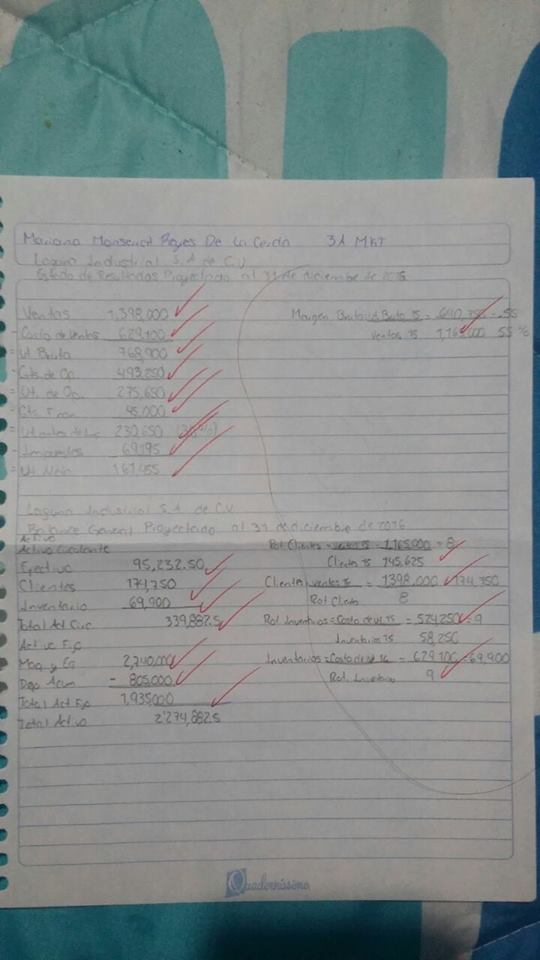 Mariana Monserrat Reyes De La Cerda 3A MKT
Laguna Industrial S.A de C.V
Estado de Resultados Proyectado al 31 de diciembre de 2016
Ventas 1,398,000
- Costo de ventas 629,100
= Ut Bruta 768,900
- Gts. de Op. 493,250
= Ut. de Op. 275,650
- Gts. 45,000
= Ut antes de 230,650 (30%)
- Impuestos 69,195
= Ut. Neta 161,455
Margen Bruto = Ut Bruta 15 = 640,750 = .55
Ventas 15 1,165,000 55%
Laguna Industrial S.A de C.V
Balance General Proyectado al 31 de diciembre de 2016
Activo
Activo Circulante
Efectivo 95,232.50
Clientes 174,750
Inventario 69,900
Total Act Circ 339,882.5
Activo Fijo
Maq. y Eq 2,740,000
Dep. Acum - 805,000
Total Act Fijo 1,935,000
Total Activo 2'274,882.5
Rot Clientes = Ventas 15 = 1,165,000 = 8
Clientes 15 145,625
Clientes = ventas = 1398,000 = 174,750
Rot Clientes 8
Rot Inventarios = Costo de vt. 15 = 524,250 = 9
Inventarios 15 58,250
Inventarios = Costo de vt 16 = 629,100 = 69,900
Rot. Inventario 9
Quaderníssimo